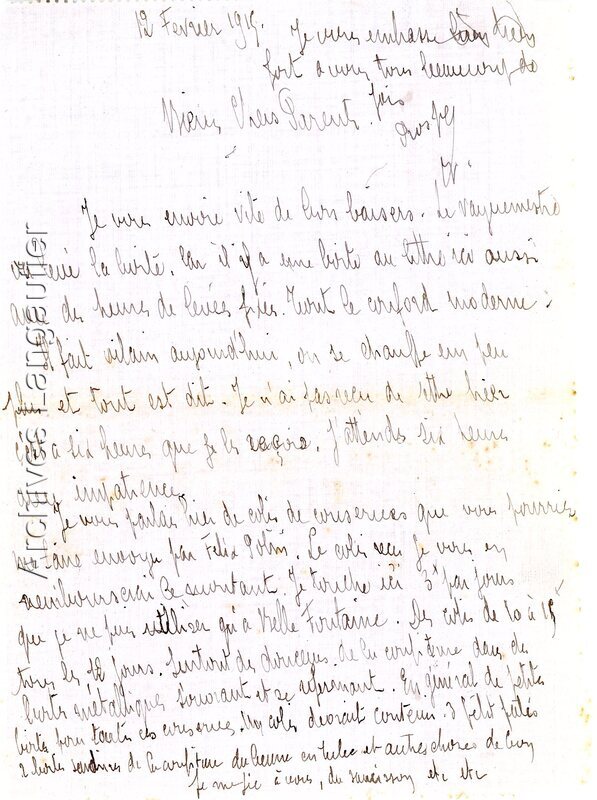 12 Février 1915.
Je vous embrasse bien
fort à vous tous beaucoup de
fois
Mes Chers Parents.
Je vous envoie vite de bons baisers. Le Vaguemestre
la boite. Car il y a une boite au lettre ici aussi
avec des heures de levées fixes. Tout le conford moderne.
Il fait vilain aujourd'hui, on se chauffe un peu
plus et tout est dit. Je n'ai pas reçu de lettre hier
c'est a six heures que je les reçois. J'attends six heures
avec impatience.
Je vous parlais hier de colis de conserves que vous pourriez
envoyer par Félix Potin. Le colis reçu je vous en
rembourserai le montant. Je touche ici 3 par jour
que je ne puis utiliser qu'a Fontaine. Des colis de 10 à 15
tous les 12 jours. Surtout des douceurs, de la confiture dans des
boites métalliques s'ouvrant et se refermant. En général de petites
boites pour toutes ces conserves. Un colis devrait contenir 3 petit pâtés
2 boites sardines de la confiture du beurre en tube et autres choses de bon
Je me fie à vous, du saucisson etc etc
Archives J-Langeuttier